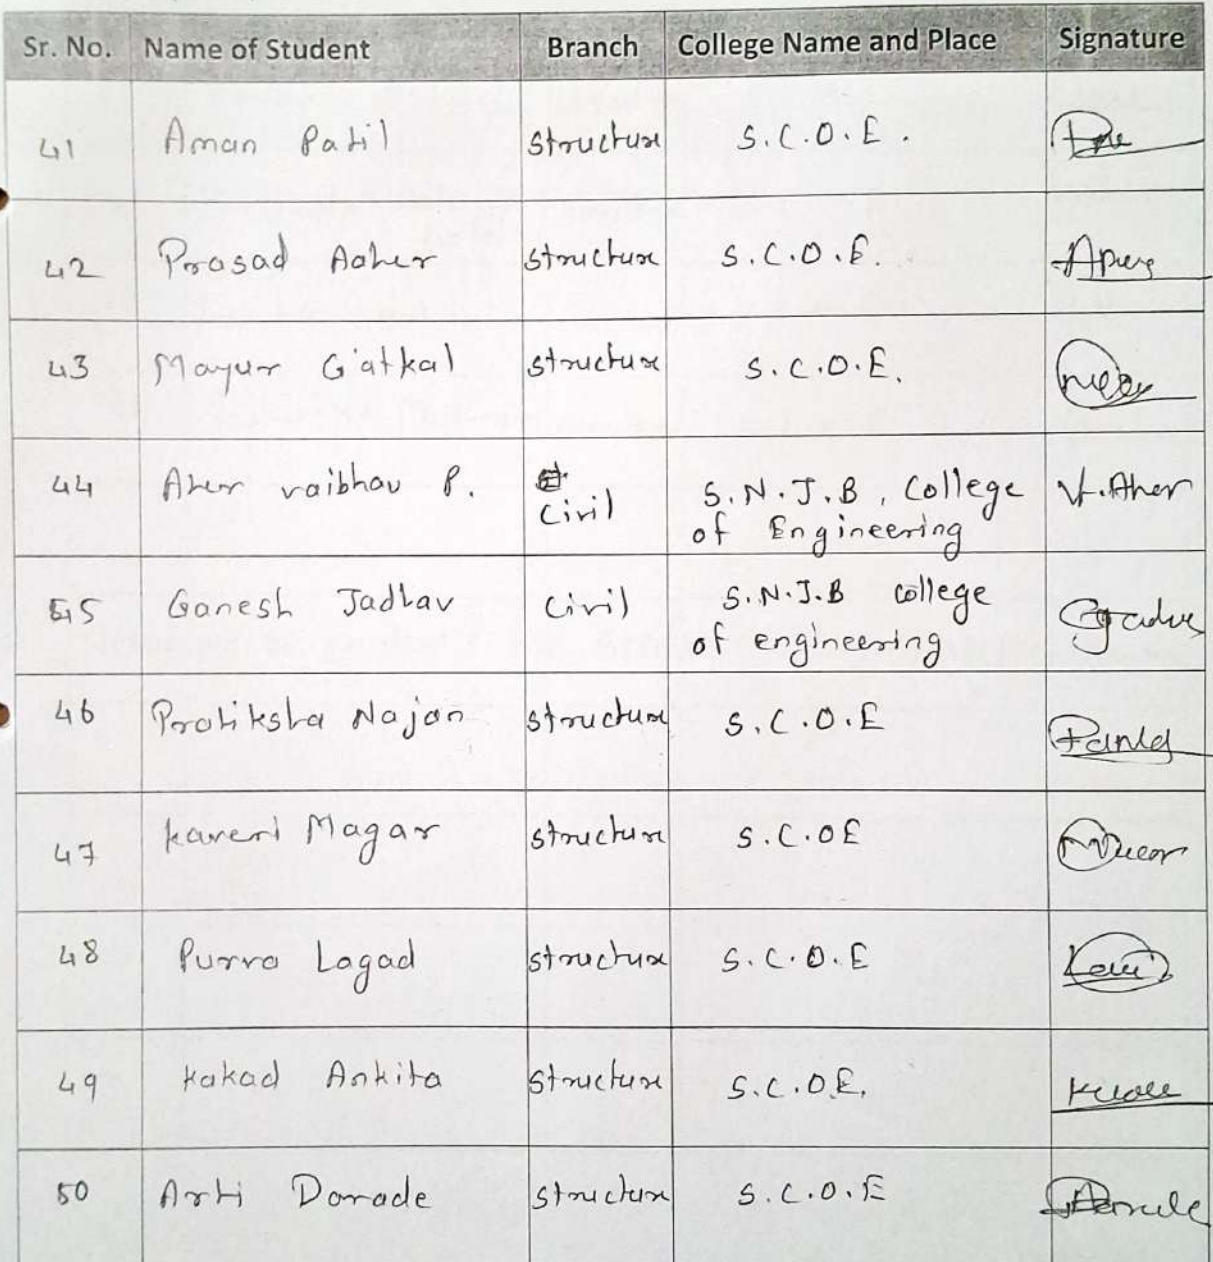 Sr. No. Name of Student Branch College Name and Place Signature
41 Aman Patil structure S.C.O.E.
42 Prasad Aaher structure S.C.O.E.
43 Mayur Gatkal structure S.C.O.E.
44 Aher vaibhav P. Civil S.N.J.B, College of Engineering V.Aher
45 Ganesh Jadhav Civil S.N.J.B college of engineering
46 Pratiksha Najan structure S.C.O.E
47 kaveri Magar structure S.C.OE
48 Purva Lagad structure S.C.O.E
49 Kakad Ankita structure S.C.O.E.
50 Arti Darade structure S.C.O.E